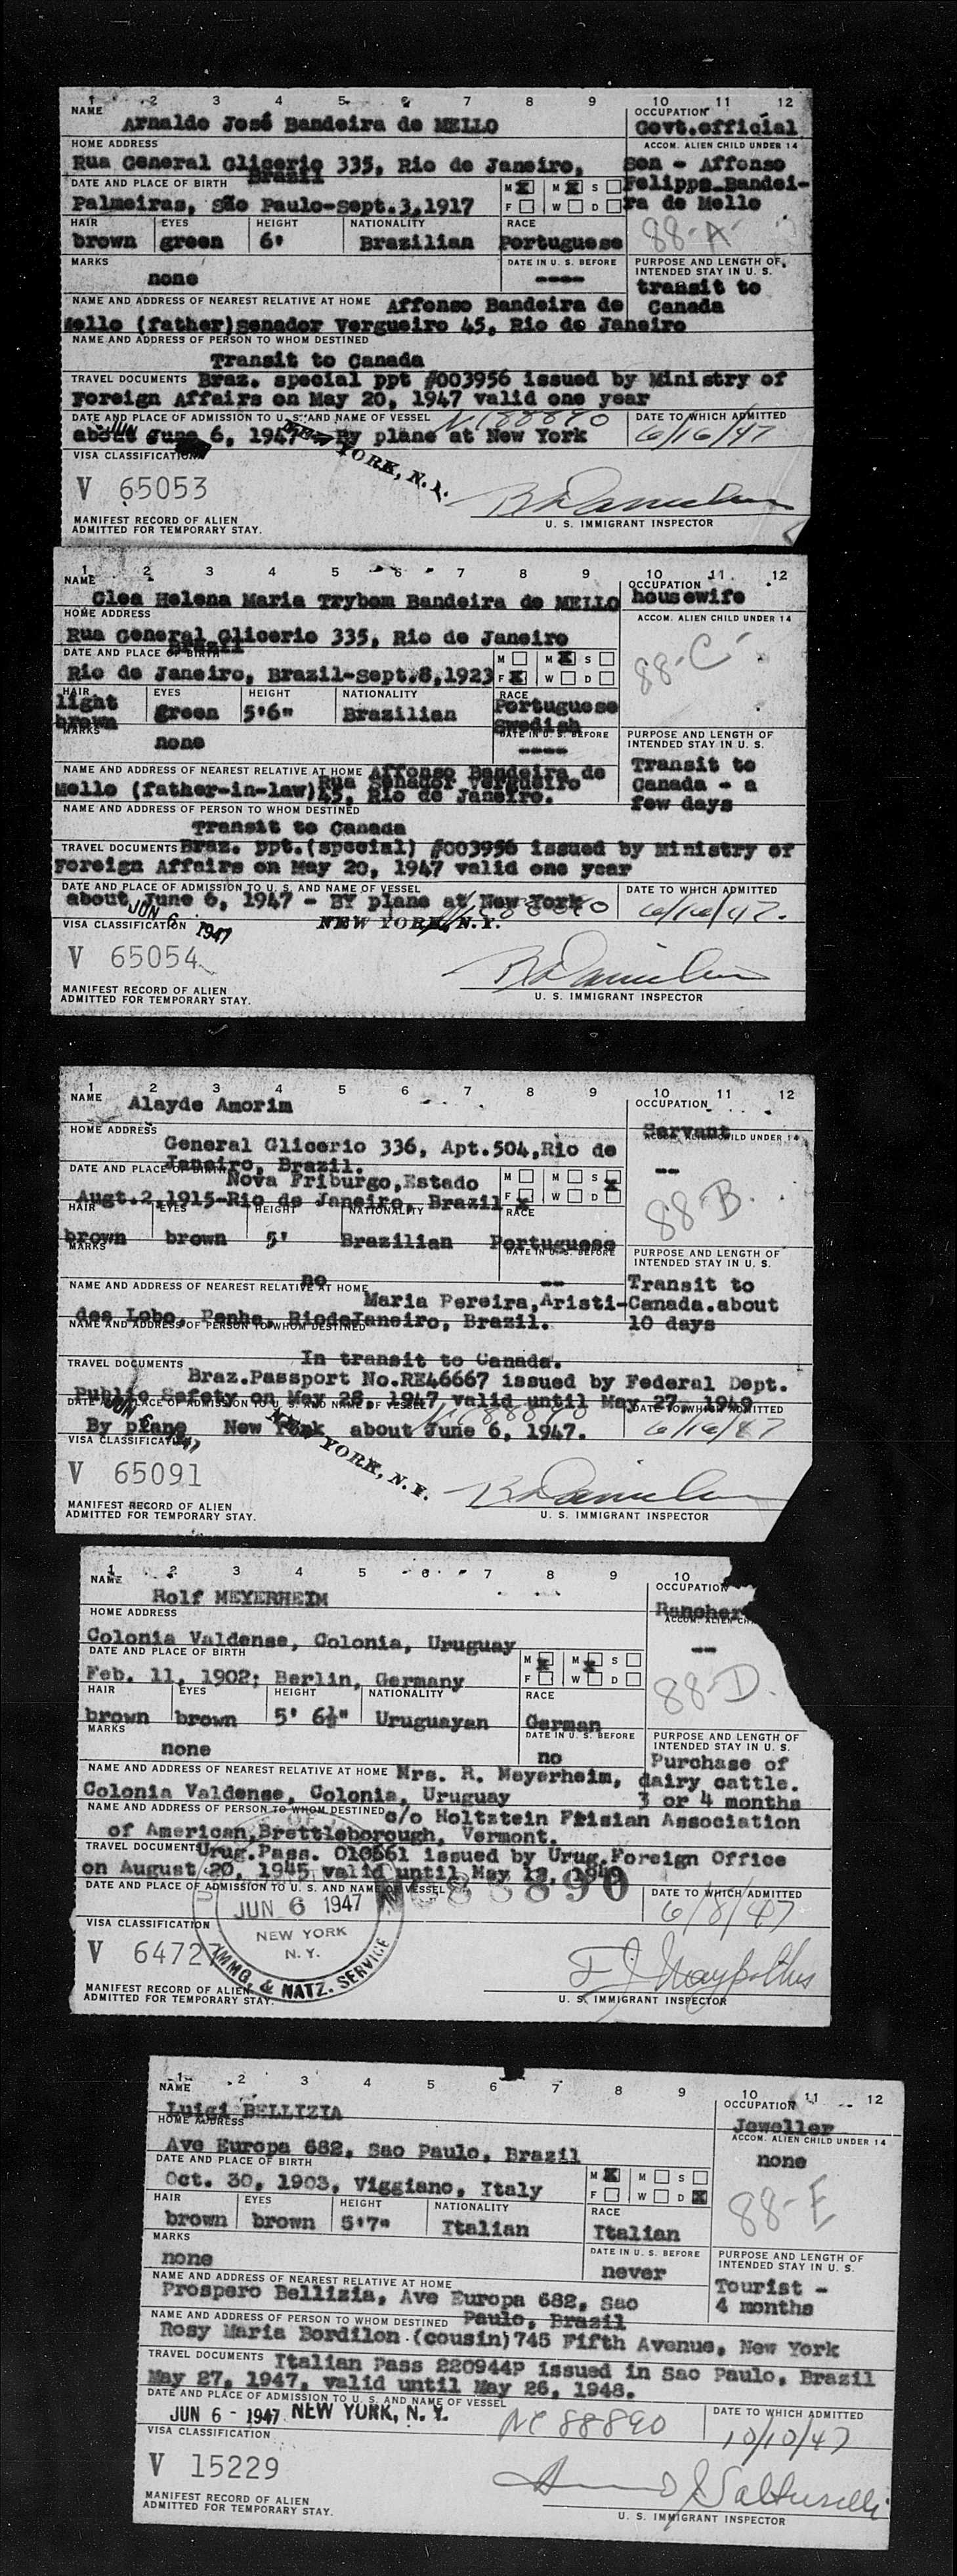 1 2 3 4 5 6 7 8 9 10 11 12
NAME Arnaldo José Bandeira de MELLO
OCCUPATION Govt.official
HOME ADDRESS
Rua General Glicerio 335, Rio de Janeiro,
Brazil
ACCOM. ALIEN CHILD UNDER 14
Son - Affonso
Felippe Bandei-
ra de Mello
88-A-
DATE AND PLACE OF BIRTH
Palmeiras, São Paulo-Sept.3,1917
M X M X S
F W D
HAIR EYES HEIGHT NATIONALITY RACE
brown green 6' Brazilian Portuguese
MARKS none
DATE IN U. S. BEFORE ----
PURPOSE AND LENGTH OF
INTENDED STAY IN U. S.
transit to
Canada
NAME AND ADDRESS OF NEAREST RELATIVE AT HOME Affonso Bandeira de
Mello (father)Senador Vergueiro 45, Rio de Janeiro
NAME AND ADDRESS OF PERSON TO WHOM DESTINED
Transit to Canada
TRAVEL DOCUMENTS Braz. special ppt #003956 issued by Ministry of
Foreign Affairs on May 20, 1947 valid one year
DATE AND PLACE OF ADMISSION TO U. S. AND NAME OF VESSEL NC88890
about June 6, 1947 - By plane at New York
DATE TO WHICH ADMITTED
6/16/47
JUN
YORK, N. Y.
VISA CLASSIFICATION
V 65053
U. S. IMMIGRANT INSPECTOR
MANIFEST RECORD OF ALIEN
ADMITTED FOR TEMPORARY STAY.
1 2 3 4 5 6 7 8 9 10 11 12
NAME
Clea Helena Maria Trybom Bandeira de MELLO
OCCUPATION
housewife
HOME ADDRESS
Rua General Glicerio 335, Rio de Janeiro
Brazil
ACCOM. ALIEN CHILD UNDER 14
88-C-
DATE AND PLACE OF BIRTH
Rio de Janeiro, Brazil-Sept.8,1923
M M X S
F X W D
HAIR EYES HEIGHT NATIONALITY RACE
light brown green 5'6" Brazilian Portuguese Swedish
MARKS none
DATE IN U. S. BEFORE ----
PURPOSE AND LENGTH OF
INTENDED STAY IN U. S.
Transit to
Canada - a
few days
NAME AND ADDRESS OF NEAREST RELATIVE AT HOME Affonso Bandeira de
Mello (father-in-law) Rua Senador Vergueiro
45, Rio de Janeiro.
NAME AND ADDRESS OF PERSON TO WHOM DESTINED
Transit to Canada
TRAVEL DOCUMENTS Braz. ppt.(special) #003956 issued by Ministry of
Foreign Affairs on May 20, 1947 valid one year
DATE AND PLACE OF ADMISSION TO U. S. AND NAME OF VESSEL
about June 6, 1947 - BY plane at New York
DATE TO WHICH ADMITTED
6/16/47.
JUN 6 1947
NEW YORK, N.Y.
VISA CLASSIFICATION
V 65054
U. S. IMMIGRANT INSPECTOR
MANIFEST RECORD OF ALIEN
ADMITTED FOR TEMPORARY STAY.
1 2 3 4 5 6 7 8 9 10 11 12
NAME Alayde Amorim
OCCUPATION
Servant
HOME ADDRESS
General Glicerio 336, Apt.504,Rio de
Janeiro, Brazil.
ACCOM. ALIEN CHILD UNDER 14
--
88-B.
DATE AND PLACE OF BIRTH
Nova Friburgo,Estado
Augt.2,1915-Rio de Janeiro, Brazil
M M S X
F X W D
HAIR EYES HEIGHT NATIONALITY RACE
brown brown 5' Brazilian Portuguese
MARKS no
DATE IN U. S. BEFORE --
PURPOSE AND LENGTH OF
INTENDED STAY IN U. S.
Transit to
Canada.about
10 days
NAME AND ADDRESS OF NEAREST RELATIVE AT HOME
Maria Pereira,Aristi-
des Lobo, Penha, RiodeJaneiro, Brazil.
NAME AND ADDRESS OF PERSON TO WHOM DESTINED
In transit to Canada.
TRAVEL DOCUMENTS
Braz.Passport No.RE46667 issued by Federal Dept.
Public Safety on May 28, 1947 valid until May 27, 1949
DATE AND PLACE OF ADMISSION TO U. S. AND NAME OF VESSEL NC88890
By plane New York about June 6, 1947.
DATE TO WHICH ADMITTED
6/16/47
JUN 6 1947
NEW YORK, N.Y.
VISA CLASSIFICATION
V 65091
U. S. IMMIGRANT INSPECTOR
MANIFEST RECORD OF ALIEN
ADMITTED FOR TEMPORARY STAY.
1 2 3 4 5 6 7 8 9 10
NAME
Rolf MEYERHEIM
OCCUPATION
Rancher
HOME ADDRESS
Colonia Valdense, Colonia, Uruguay
ACCOM. ALIEN CH
--
88-D.
DATE AND PLACE OF BIRTH
Feb. 11, 1902; Berlin, Germany
M X M X S
F W D
HAIR EYES HEIGHT NATIONALITY RACE
brown brown 5' 6½" Uruguayan German
MARKS none
DATE IN U. S. BEFORE
no
PURPOSE AND LENGTH OF
INTENDED STAY IN U. S.
Purchase of
dairy cattle.
3 or 4 months
NAME AND ADDRESS OF NEAREST RELATIVE AT HOME Mrs. R. Meyerheim,
Colonia Valdense, Colonia, Uruguay
NAME AND ADDRESS OF PERSON TO WHOM DESTINED c/o Holtztein Frisian Association
of American,Brettleborough, Vermont.
TRAVEL DOCUMENTS Urug.Pass. 010661 issued by Urug.Foreign Office
on August 20, 1945 valid until May 12, 1949
DATE AND PLACE OF ADMISSION TO U. S. AND NAME OF VESSEL
NC88890
DATE TO WHICH ADMITTED
6/8/47
JUN 6 1947
NEW YORK
N. Y.
IMMG. & NATZ. SERVICE
VISA CLASSIFICATION
V 64727
U. S. IMMIGRANT INSPECTOR
MANIFEST RECORD OF ALIEN
ADMITTED FOR TEMPORARY STAY.
1 2 3 4 5 6 7 8 9 10 11 12
NAME
Luigi BELLIZIA
OCCUPATION
Jeweller
HOME ADDRESS
Ave Europa 682, Sao Paulo, Brazil
ACCOM. ALIEN CHILD UNDER 14
none
88-E
DATE AND PLACE OF BIRTH
Oct. 30, 1903, Viggiano, Italy
M X M S
F W D X
HAIR EYES HEIGHT NATIONALITY RACE
brown brown 5'7" Italian Italian
MARKS
none
DATE IN U. S. BEFORE
never
PURPOSE AND LENGTH OF
INTENDED STAY IN U. S.
Tourist -
4 months
NAME AND ADDRESS OF NEAREST RELATIVE AT HOME
Prospero Bellizia, Ave Europa 682, Sao
Paulo, Brazil
NAME AND ADDRESS OF PERSON TO WHOM DESTINED
Rosy Maria Bordilon (cousin)745 Fifth Avenue, New York
TRAVEL DOCUMENTS Italian Pass 220944P issued in Sao Paulo, Brazil
May 27, 1947, valid until May 26, 1948.
DATE AND PLACE OF ADMISSION TO U. S. AND NAME OF VESSEL
JUN 6 - 1947 NEW YORK, N. Y. NC 88890
DATE TO WHICH ADMITTED
10/10/47
VISA CLASSIFICATION
V 15229
U. S. IMMIGRANT INSPECTOR
MANIFEST RECORD OF ALIEN
ADMITTED FOR TEMPORARY STAY.